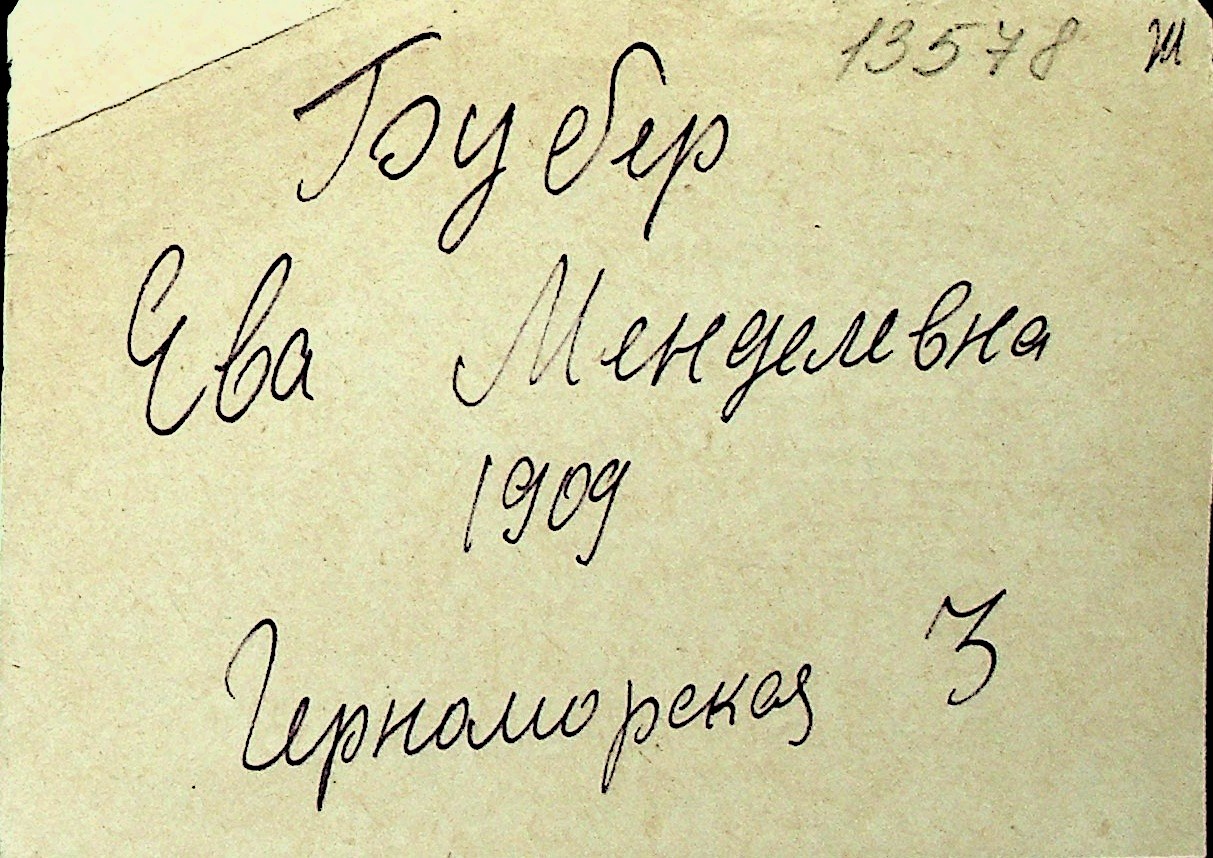 13578 Ж
Бубер
Ева Менделевна
1909
Черноморская 3